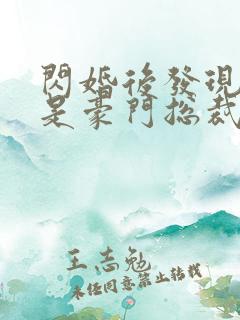 閃婚後發現
是豪門總裁
王志勉
未经同意禁止转载